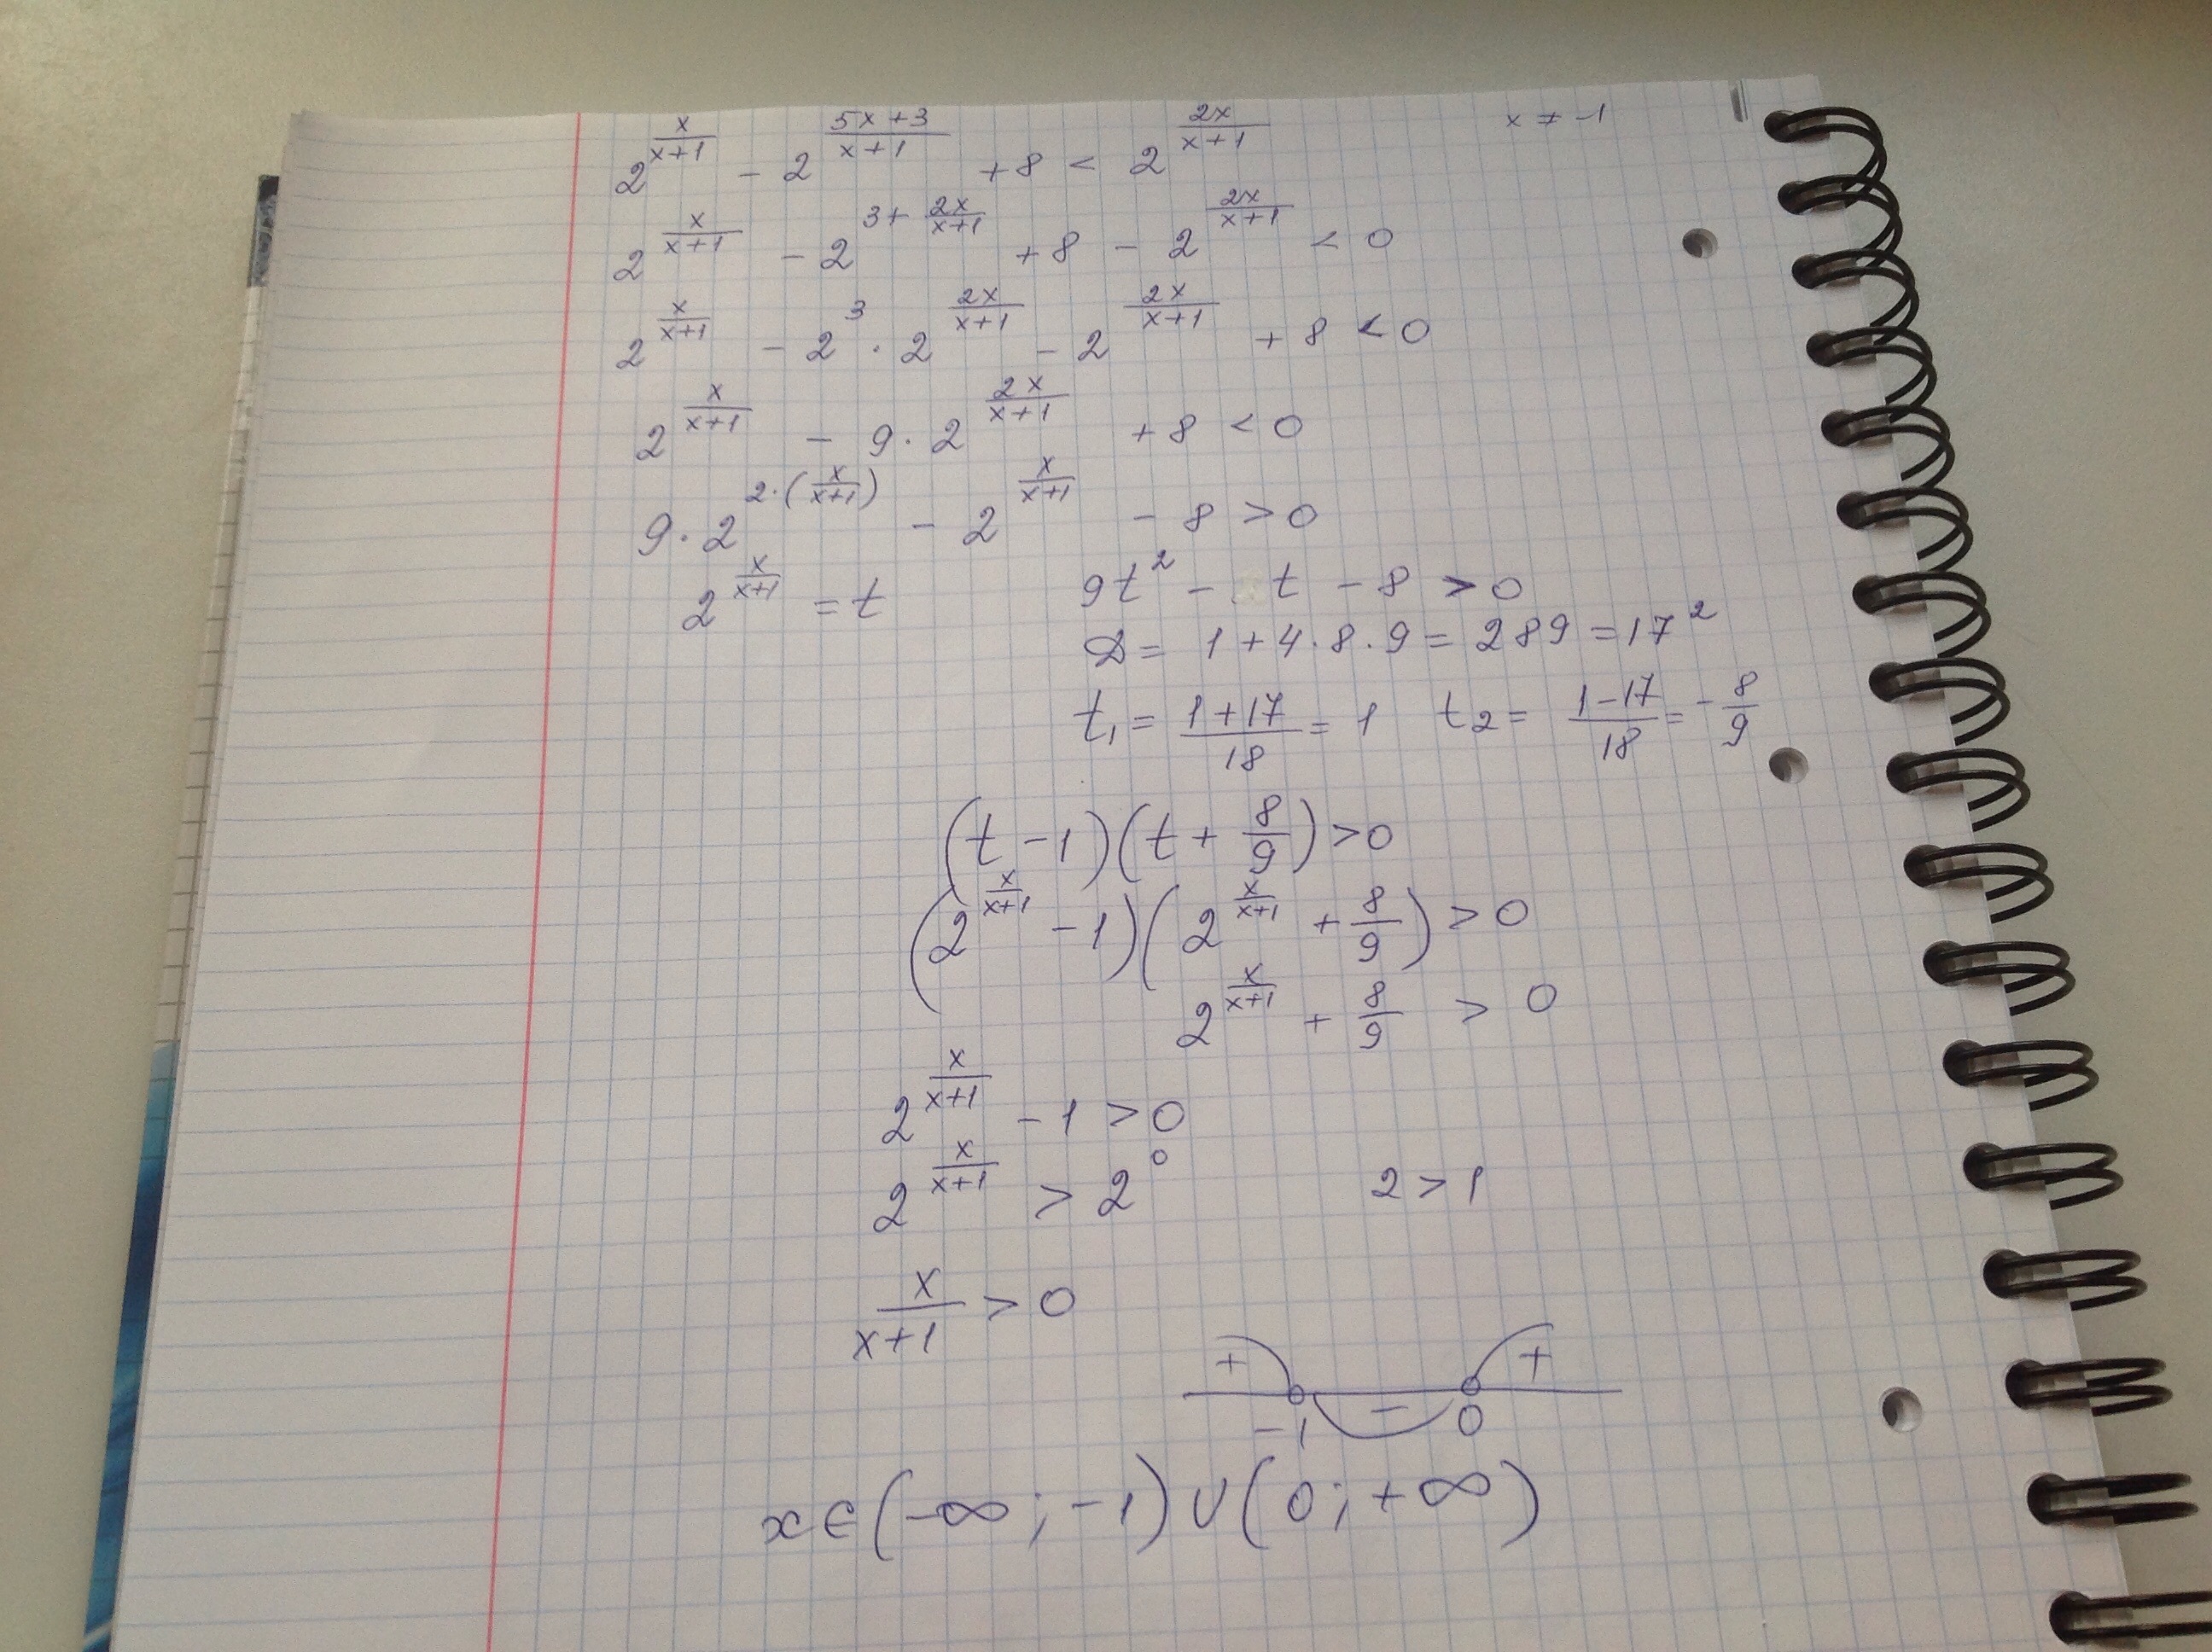 2^{\frac{x}{x+1}} - 2^{\frac{5x+3}{x+1}} + 8 < 2^{\frac{2x}{x+1}} x ≠ -1
2^{\frac{x}{x+1}} - 2^{3+\frac{2x}{x+1}} + 8 - 2^{\frac{2x}{x+1}} < 0
2^{\frac{x}{x+1}} - 2^3 · 2^{\frac{2x}{x+1}} - 2^{\frac{2x}{x+1}} + 8 < 0
2^{\frac{x}{x+1}} - 9 · 2^{\frac{2x}{x+1}} + 8 < 0
9 · 2^{2·(\frac{x}{x+1})} - 2^{\frac{x}{x+1}} - 8 > 0
2^{\frac{x}{x+1}} = t 9t^2 - t - 8 > 0
D = 1 + 4 · 8 · 9 = 289 = 17^2
t_1 = \frac{1+17}{18} = 1 t_2 = \frac{1-17}{18} = -\frac{8}{9}
(t - 1)(t + \frac{8}{9}) > 0
(2^{\frac{x}{x+1}} - 1)(2^{\frac{x}{x+1}} + \frac{8}{9}) > 0
2^{\frac{x}{x+1}} + \frac{8}{9} > 0
2^{\frac{x}{x+1}} - 1 > 0
2^{\frac{x}{x+1}} > 2^0 2 > 1
\frac{x}{x+1} > 0
+ - +
-1 0
x ∈ (-∞; -1) ∪ (0; +∞)